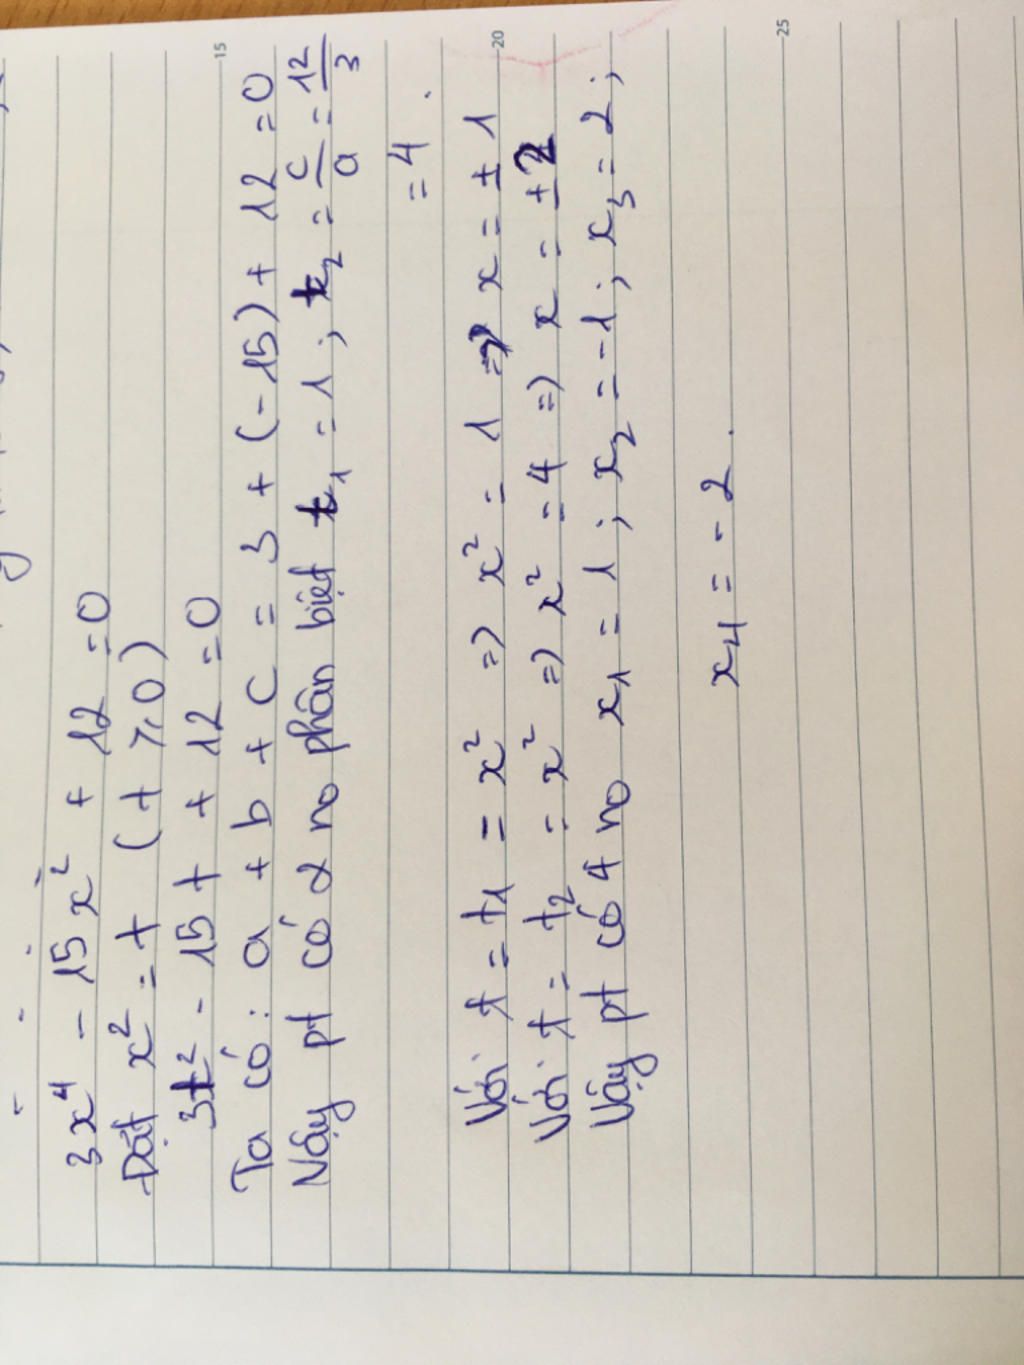 3x⁴ - 15x² + 12 = 0
Đặt x² = t (t ≥ 0)
3t² - 15t + 12 = 0
Ta có: a + b + c = 3 + (-15) + 12 = 0
Vậy pt có 2 no phân biệt t₁ = 1 ; t₂ = c/a = 12/3
= 4 .
Với t = t₁ = x² => x² = 1 => x = ± 1
Với t = t₂ = x² => x² = 4 => x = ± 2
Vậy pt có 4 no x₁ = 1 ; x₂ = -1 ; x₃ = 2 ;
x₄ = - 2 .
15
20
25